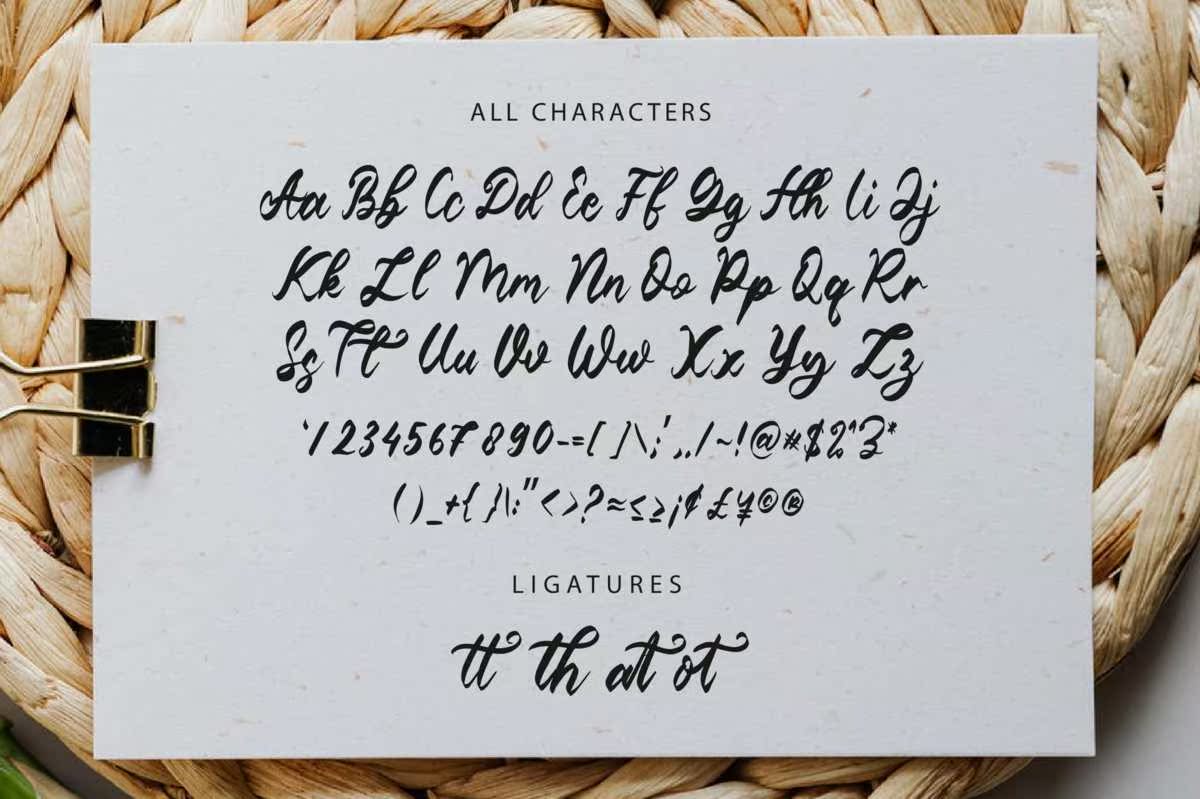 ALL CHARACTERS
Aa Bb Cc Dd Ee Ff Gg Hh Ii Jj
Kk Ll Mm Nn Oo Pp Qq Rr
Ss Tt Uu Vv Ww Xx Yy Zz
`1234567890-=[ ]\;',./~!@#$%^&*
()_+{ }|:"<>?≈≤≥¡¢£¥©®
LIGATURES
tt th at ot